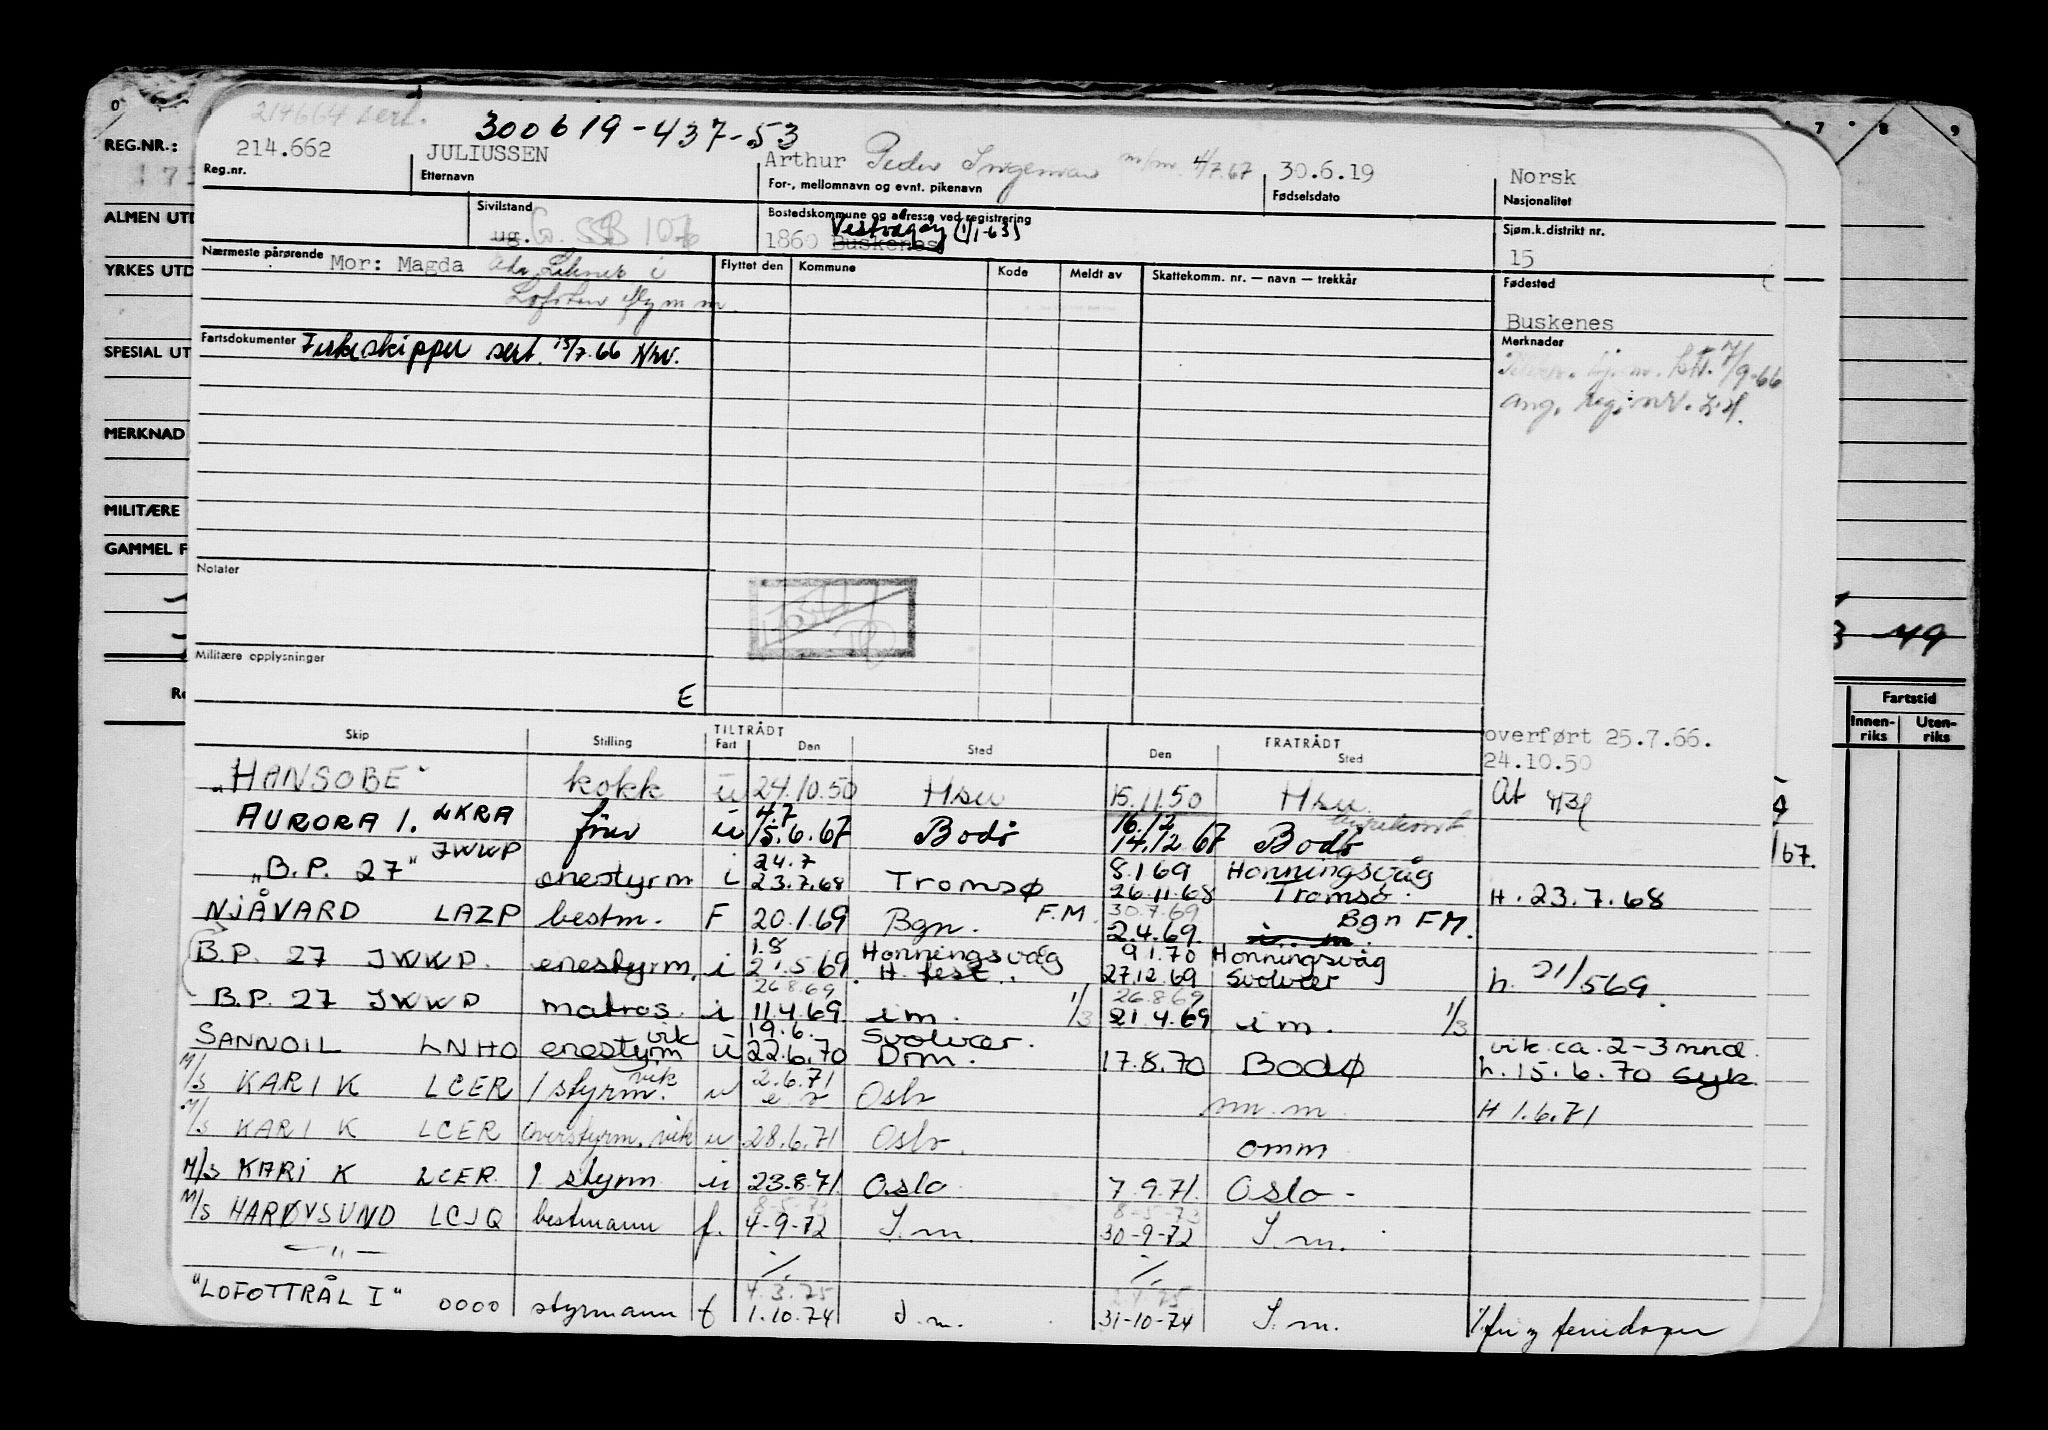 214664 sert. 300619-437-53
214.662 JULIUSSEN Arthur Peder Ingemar 4/7.67 30.6.19 Norsk
Reg.nr. Etternavn For-, mellomnavn og evnt. pikenavn Fødselsdato Nasjonalitet
Sivilstand Bostedskommune og adresse ved registrering Sjøm.k.distrikt nr.
ug. G. SSB 107 1860 Buskenes Vestvågøy (1/1-63) 15
Nærmeste pårørende Mor: Magda Flyttet den Kommune Kode Meldt av Skattekomm. nr. — navn — trekkår Fødested
Buskenes
Fartsdokumenter Fiskeskipper sert. 15/7.66 Nrv. Merknader
9-66
ang. reg. nr.
Notater
Militære opplysninger
E
Skip Stilling TILTRÅDT Fart Den Sted FRATRÅDT Den Sted overført 25.7.66.
24.10.50
"HANSOBE" kokk u 24.10.50 Hsu 15.11.50 Hsu. At
AURORA 1. LKRA u 4.7 15.6.67 Bodø 16.12 14.12.67 Bodø
"B.P. 27" JWWP enestyrm i 24.7 23.7.68 Tromsø 8.1 69 26.11.68 Honningsvåg Tromsø. H. 23.7.68
NJÅVARD LAZP bestm. F 20.1.69 Bgn. F.M. 30.7.69 2.4.69. Bgn FM.
B.P. 27 JWWP. enestyrm. i 1.8 21.5 69 Honningsvåg H. fest. 9.1.70 27.12.69 Honningsvåg Svolvær h. 21/5 69.
B.P. 27 JWWP matros. i 26.8.69 11.4.69. i m. 1/3 26.8.69 21.4.69 i m. 1/3
SANNOIL LNHO enestyrm vik u 19.6. 22.6.70 Svolvær. Drm. 17.8.70 Bodø vik ca. 2-3 mnd. h. 15.6.70 syk.
M/S KARI K LCER 1 styrm. vik u 2.6.71 Oslo m.m. H 1.6.71
M/S KARI K LCER Overstyrm. vik u 28.6.71 Oslo. omm
M/S KARI K LCER. 1 styrm u 23.8.71. Oslo 7.9.71. Oslo -
M/S HARØYSUND LCJQ bestmann f. 8-5-73 4-9-72 I.m. 8-5-73 30-9-72 I.m.
— " —
"LOFOTTRÅL I" 0000 styrmann f 4.3.75 1.10.74 I.m. 31-10-74 I.m. feriedager
REG.NR.:
ALMEN UTD
YRKES UTD
SPESIAL UT
MERKNAD
MILITÆRE
GAMMEL F
0 7 8 9
49
Fartstid
Innen-riks Uten-riks
/67.